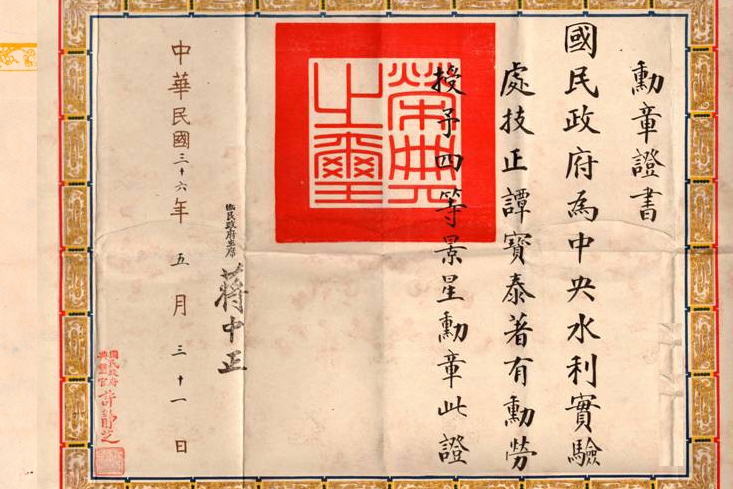 勳章證書
國民政府為中央水利實驗
處技正譚寶泰著有勳勞
授予四等景星勳章此證
榮典之璽
國民政府主席
蔣中正
中華民國三十六年五月三十一日
國民政府
典璽官